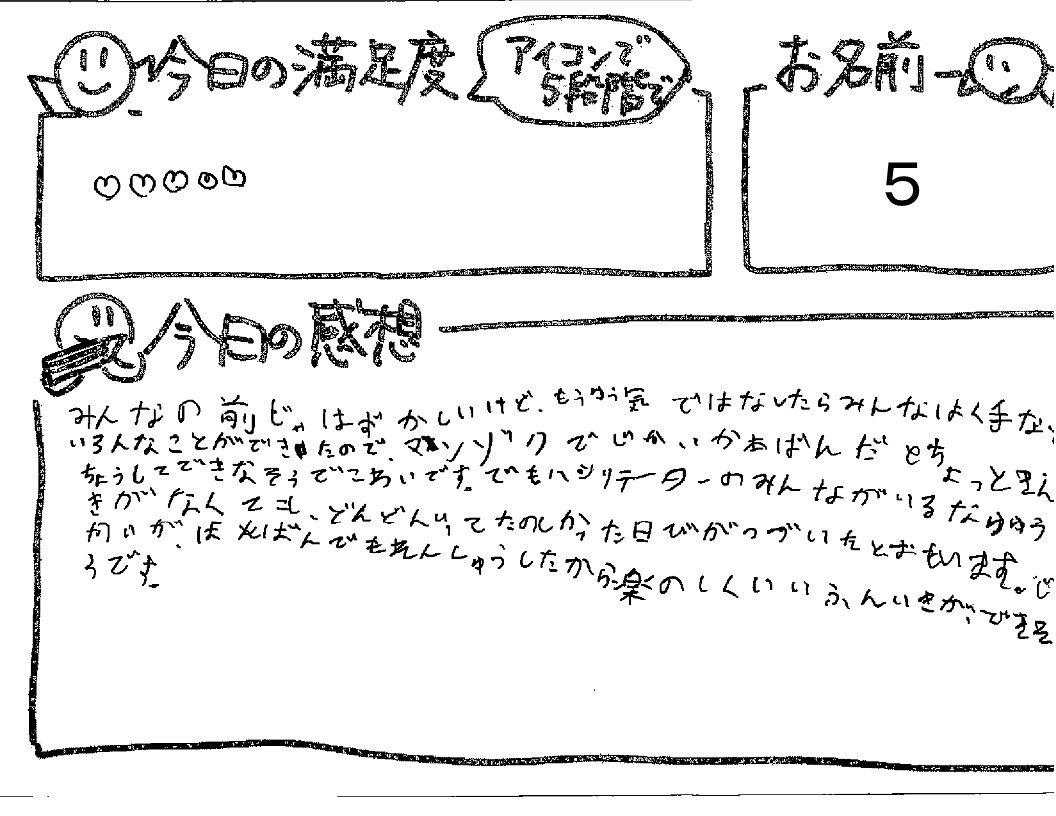 今日の満足度
アイコンで
5段階で
お名前
5
今日の感想
みんなの前じゃはずかしいけど、もうゆう気ではなしたらみんなはく手な
いろんなことができたので、マンゾクでじかいかあばんだとち
ちょうしてできなそうでこわいです。でもハシリテーターのみんながいるなゆう
きがなんてこし、どんどんいってたのしかった日びがつづいたとおもいます。じ
かいが、はんでもれんしゅうしたから楽のしくいいふんいきが、できそ
うです。